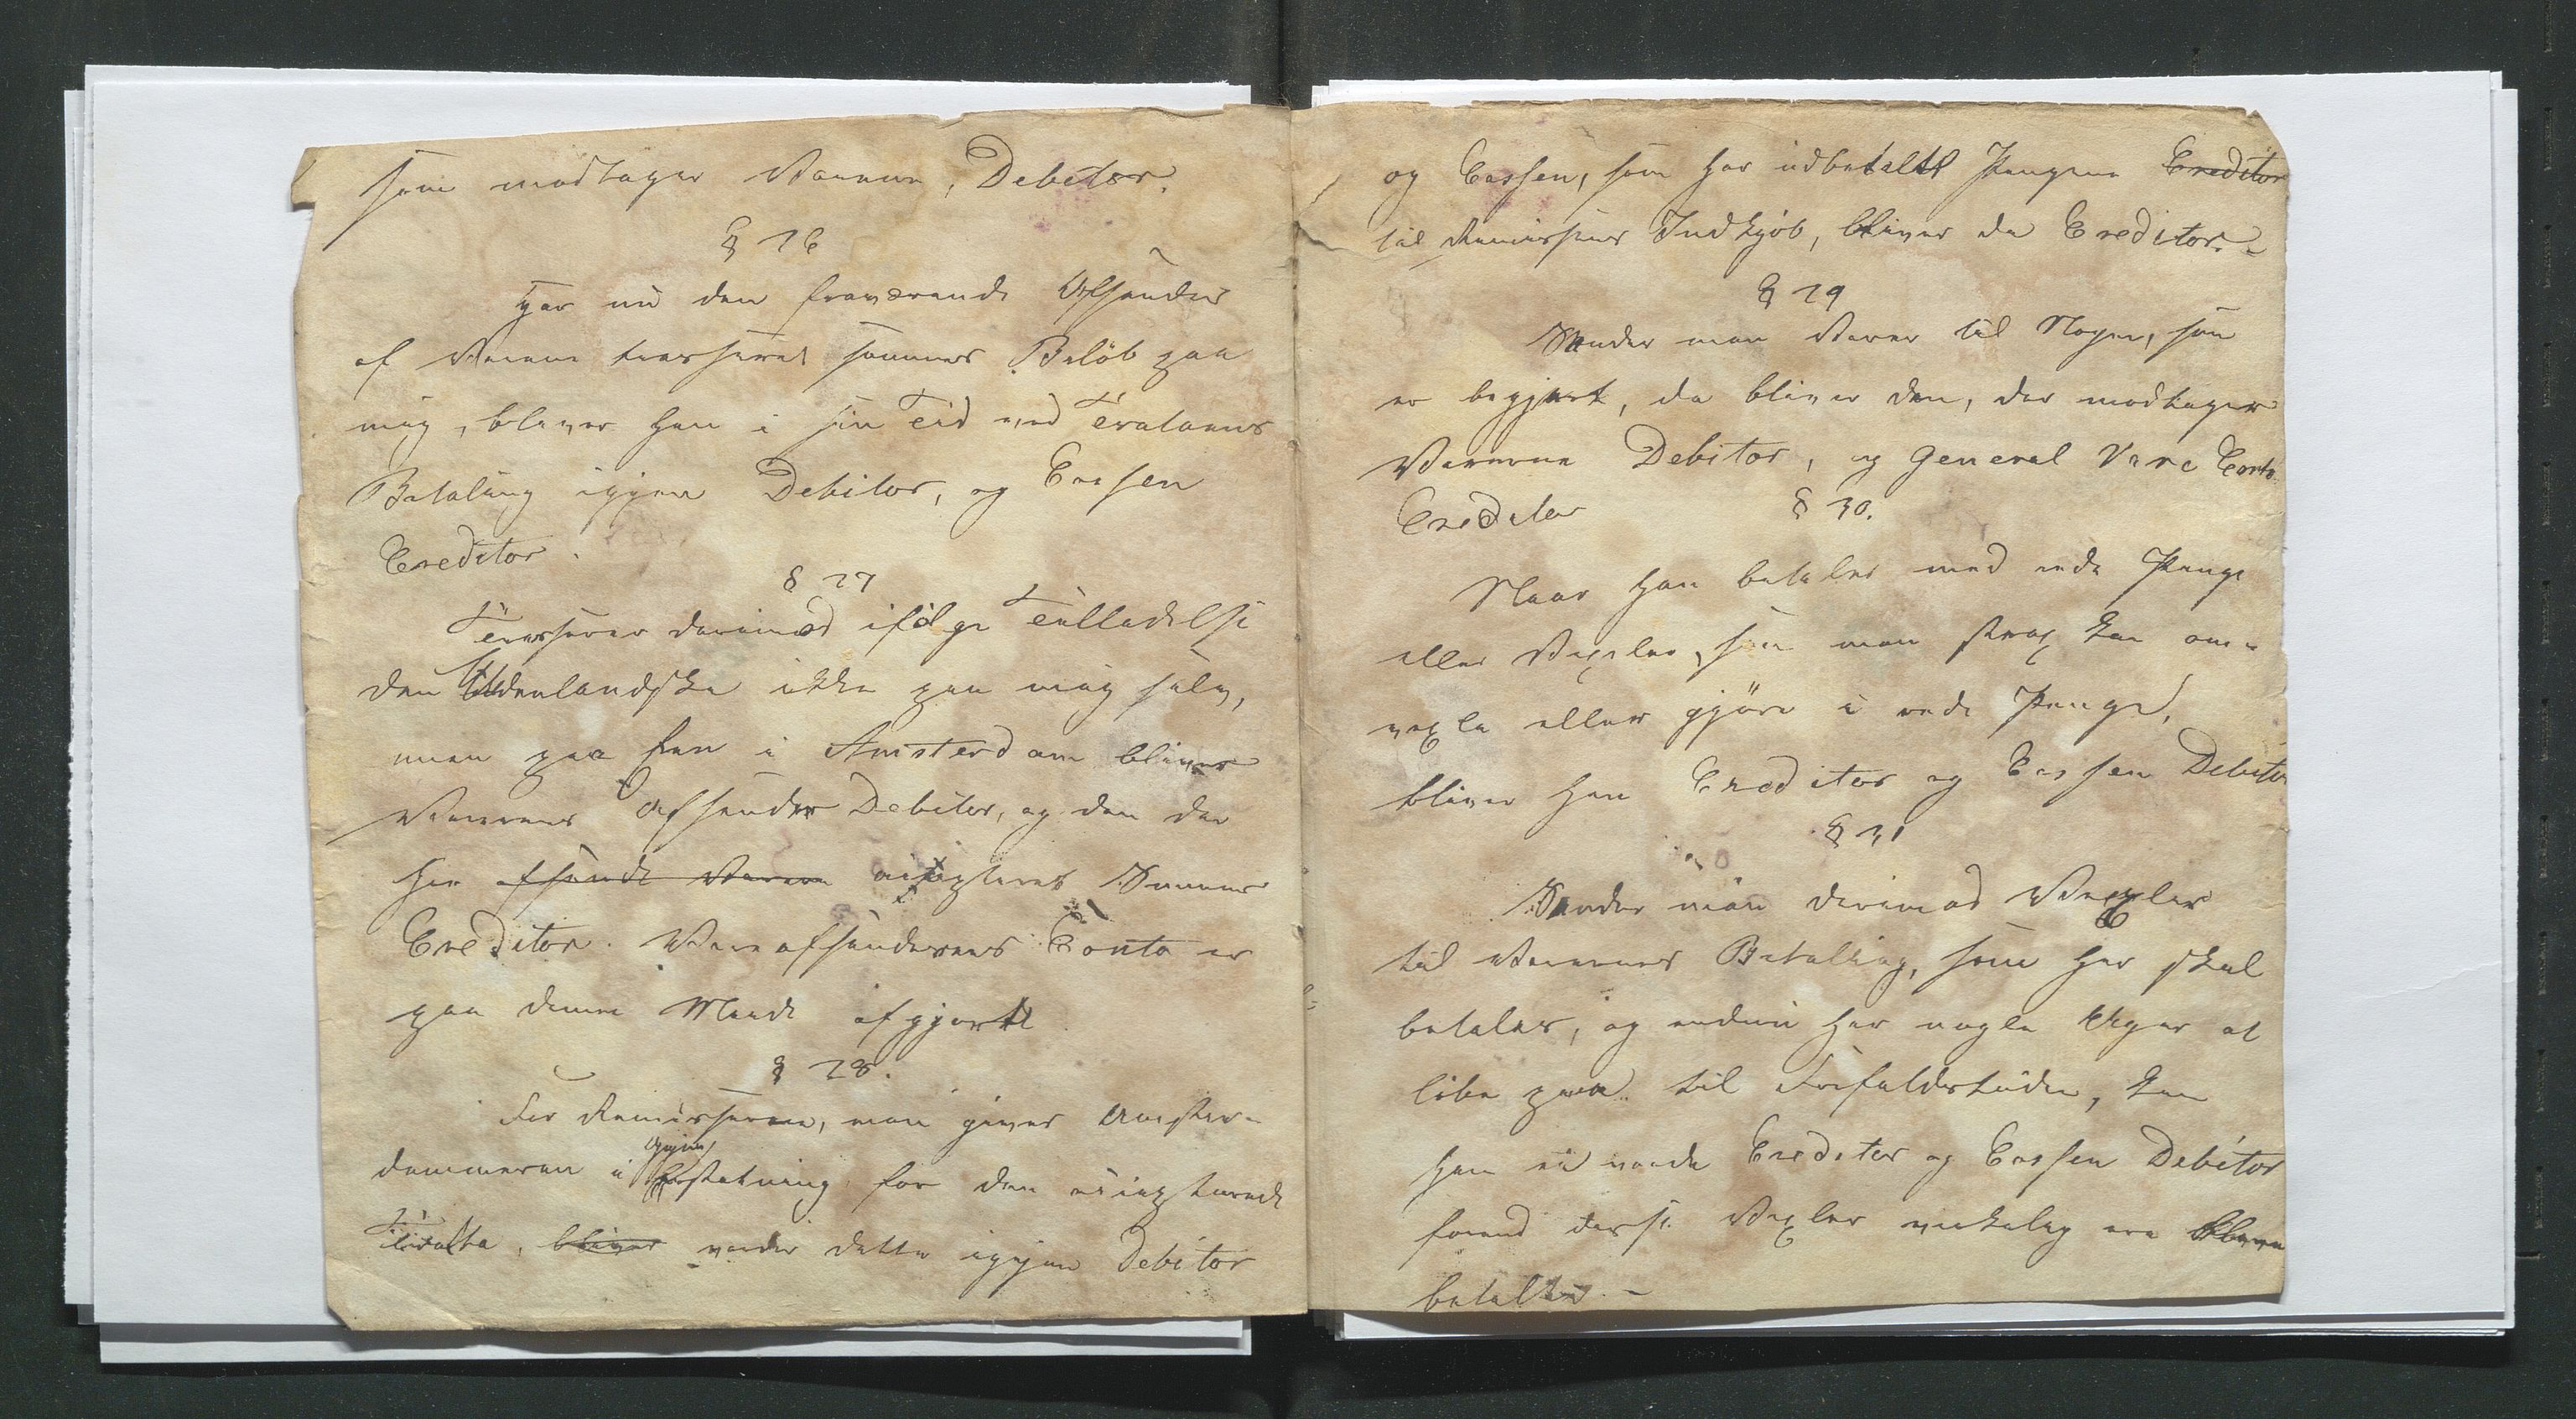 som modtager Varerne, Debitor.
§ 26
Har nu den fraværende Afsender
af Varerne trasseret sammes Beløb paa
mig, bliver han i sin Tid ved Tratatens
Betaling igjen Debitor, og Cassen
Creditor.
§ 27
Trasserer derimod ifølge Tilladelse
den Udenlandske ikke paa mig selv,
men paa En i Amsterdam bliver
Varernes Afsender Debitor, og den der
har afsendt Varerne accepteret Summen
Creditor. Vareafsenderens Conto er
paa denne Maade afgjort.
§ 28.
For Remisserne, man giver Amster-
dammeren i Gjen
Erstatning for den accepterede
Tratta, bliver vorder dette igjen Debitor
og Cassen, som har udbetalt Pengene Creditor
til Remissens Indkjöb, bliver da Creditor.-
§ 29
Sender man Varer til Nogen, som
er begjert, da bliver den, der modtager
Varerne Debitor, og General Vare Conto
Creditor § 30.
Naar han betaler med rede Penge
eller Vexler, som man strax kan om-
vexle eller gjöre i rede Penge,
bliver han Creditor og Cassen Debitor
§ 31
Sender man derimod Vexler
til Varernes Betaling, som her skal
betales, og endnu har nogle Uger at
löbe paa til Forfaldstiden, kan
han ei vorde Creditor og Cassen Debitor
forend disse Vexler virkelig ere blevne
betalte. -